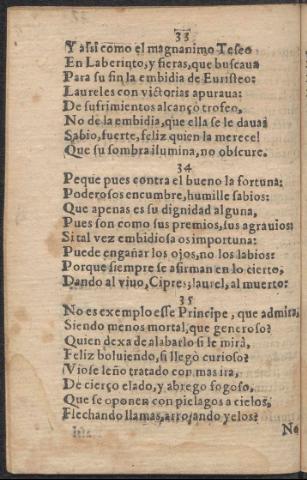 33
Y assi como el magnanimo Teseo
En Laberinto, y fieras, que buscaua
Para su fin la embidia de Euristeo:
Laureles con victorias apuraua:
De sufrimientos alcançò trofeo,
No de la embidia, que ella se le daua:
Sabio, fuerte, feliz quien la merece!
Que su sombra ilumina, no obscure.
34
Peque pues contra el bueno la fortuna:
Poderosos encumbre, humille sabios:
Que apenas es su dignidad alguna,
Pues son como sus premios, sus agrauios:
Si tal vez embidiosa os importuna:
Puede engañar los ojos, no los labios:
Porque siempre se afirman en lo cierto,
Dando al viuo, Cipres; laurel, al muerto:
35
No es exemplo esse Principe, que admira,
Siendo menos mortal, que generoso?
Quien dexa de alabarlo si le mirà,
Feliz boluiendo, si llegò curioso?
Viose leño tratado con mas ira,
De cierço elado, y abrego fogoso,
Que se oponen con pielagos a cielos,
Flechando llamas, arrojando yelos?
No